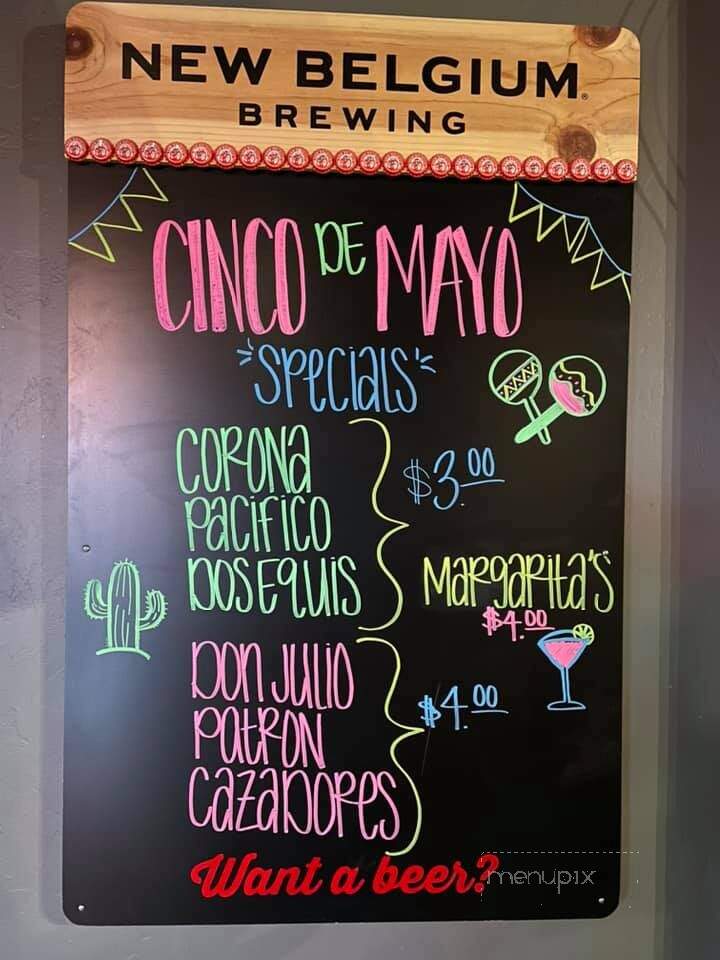 NEW BELGIUM®
BREWING
CINCO DE MAYO
"SPECIALS"
CORONA
PACIFICO
DOS EQUIS
$3.00
MARGARITA'S
$4.00
DON JULIO
PATRON
CAZADORES
$4.00
Want a beer?
menupix